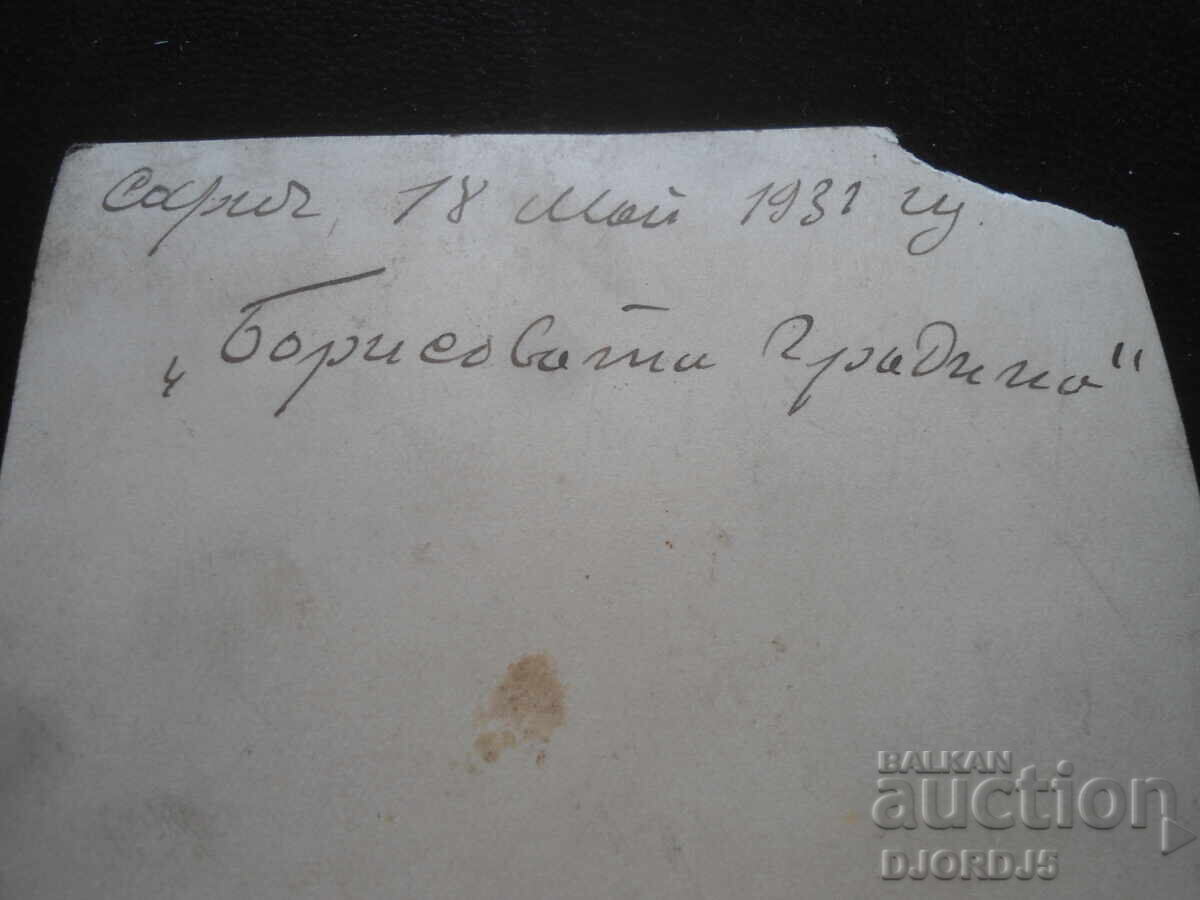 София, 18 Май 1931 гд.
„Борисовата градина"
BALKAN
auction
DJORDJ5